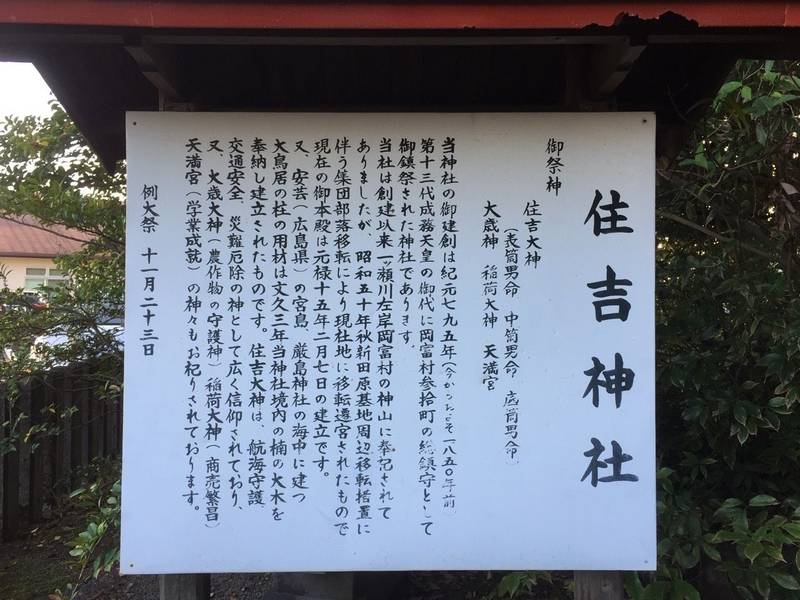 住吉神社
御祭神
住吉大神
(表筒男命 中筒男命 底筒男命)
大歳神 稲荷大神 天満宮
当神社の御建創は紀元七九五年(今からおよそ一八五〇年前)
第十三代成務天皇の御代に岡富村参拾町の総鎮守として
御鎮祭された神社であります。
当社は創建以来一ッ瀬川左岸岡富村の神山に奉祀されて
ありましたが、昭和五十年秋新田原基地周辺移転措置に
伴う集団部落移転により現社地に移転遷宮されたもので
現在の御本殿は元禄十五年二月七日の建立です。
又、安芸(広島県)の宮島 厳島神社の海中に建つ
大鳥居の柱の用材は文久三年当神社境内の楠の大木を
奉納し建立されたものです。住吉大神は、航海守護
交通安全、災難厄除の神として広く信仰されており、
又、大歳大神(農作物の守護神)稲荷大神(商売繁昌)
天満宮(学業成就)の神々もお祀りされております。
例大祭 十一月二十三日